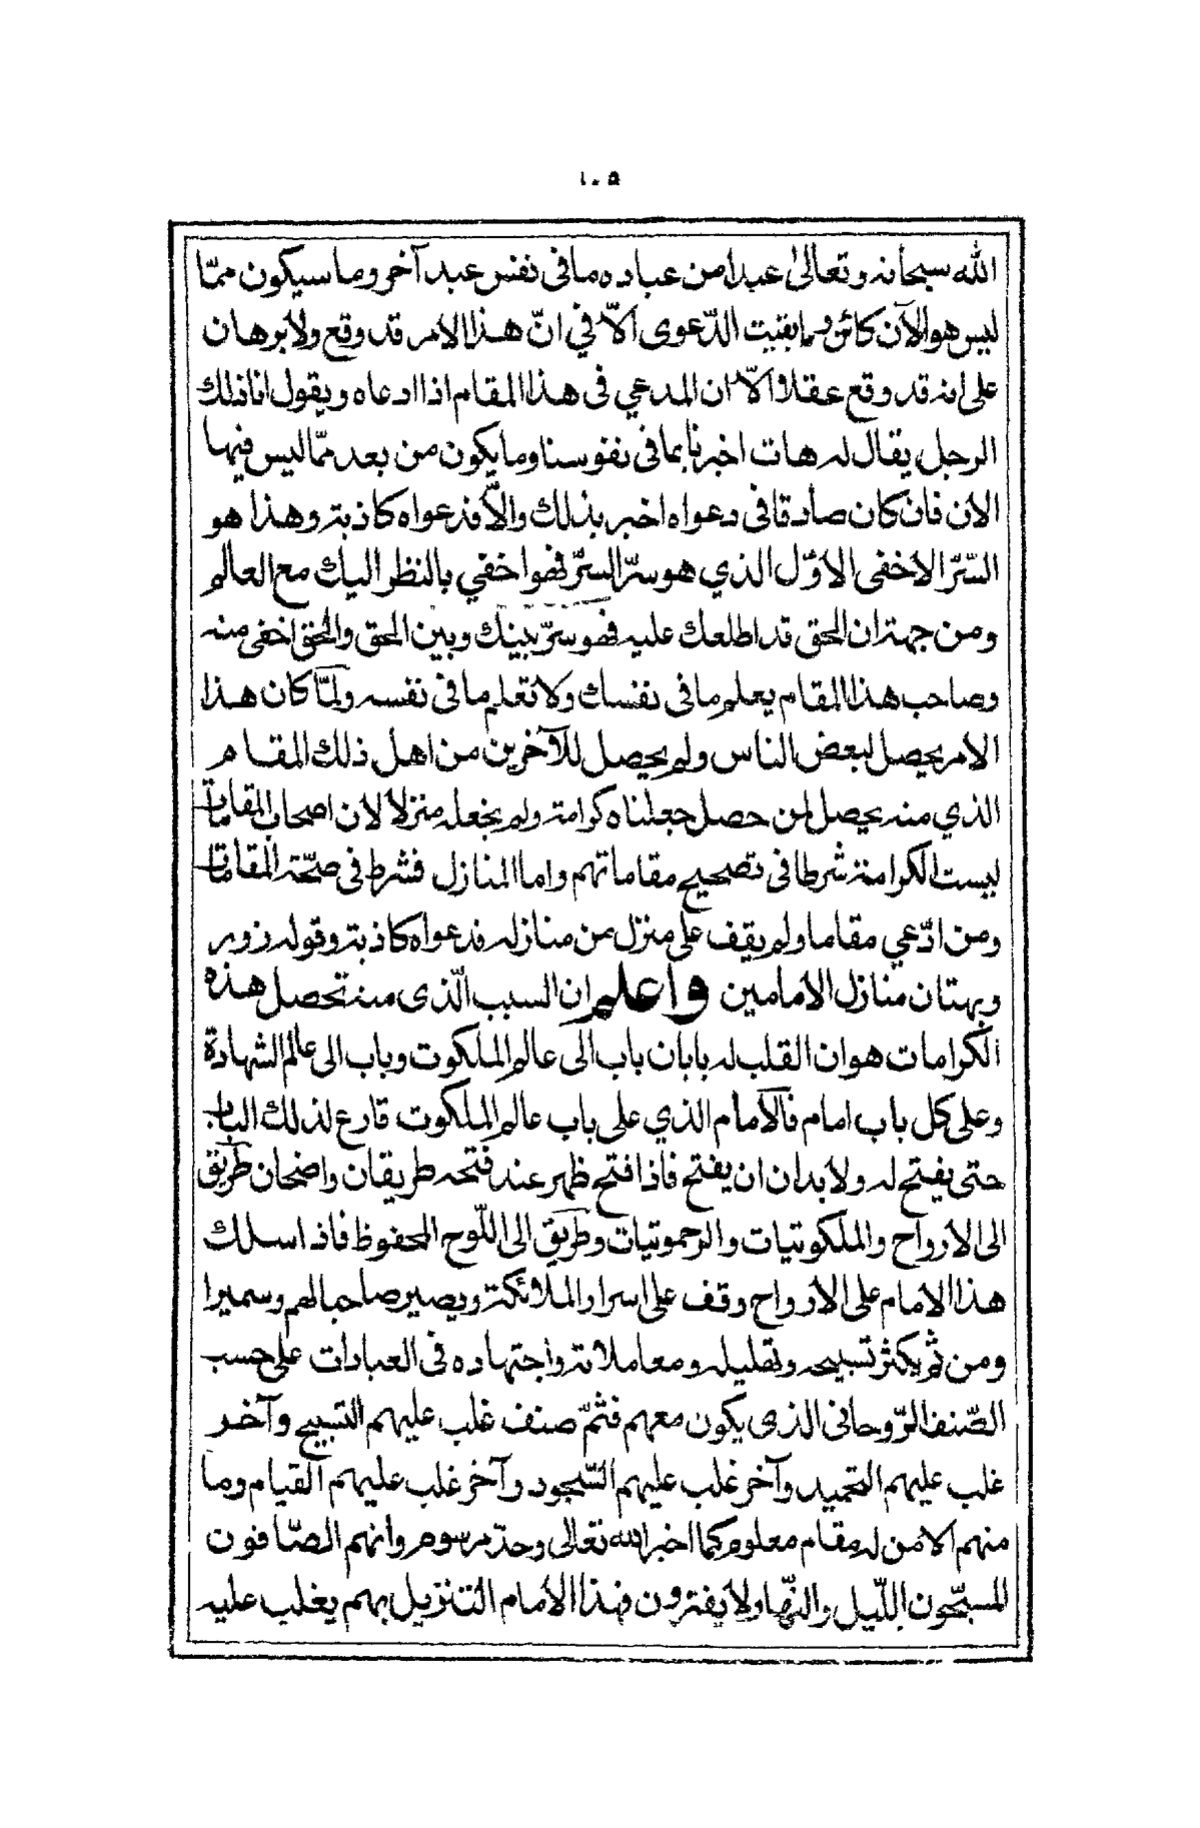 ١٠٥
الله سبحانه وتعالى عبدا من عباده ما فى نفس عبد آخر وما سيكون ممّا
ليس هو الآن كائن وما بقيت الدّعوى الاّ في انّ هذا الامر قد وقع ولا برهان
على انه قد وقع عقلا والاّ ان المدعي فى هذا المقام اذا ادعاه ويقول انا ذلك
الرجل يقال له هات اخبرنا بما فى نفوسنا وما يكون من بعد ممّا ليس فيها
الان فان كان صادقا فى دعواه اخبر بذلك والاّ فدعواه كاذبة وهذا هو
السّرّ الاخفى الاوّل الذي هو سرّ السرّ فهو اخفي بالنظر اليك مع العالم
ومن جهة ان الحق قد اطلعك عليه فهو سرّ بينك وبين الحق والحق اخفى منه
وصاحب هذا المقام يعلم ما فى نفسك ولا تعلم ما فى نفسه ولمّا كان هذا
الامر يحصل لبعض الناس ولم يحصل للآخرين من اهل ذلك المقام
الذي منه يحصل لمن حصل جعلناه كرامة ولم نجعله منزلا لان اصحاب المقامات
ليست الكرامة شرطا فى تصحيح مقاماتهم واما المنازل فشرط فى صحّة المقامات
ومن ادّعي مقاما ولم يقف على منزل من منازله فدعواه كاذبة وقوله زور
وبهتان منازل الامامين واعلم ان السبب الّذى منه تحصل هذه
الكرامات هو ان القلب له بابان باب الى عالم الملكوت وباب الى عالم الشهادة
وعلى كل باب امام فالامام الذي على باب عالم الملكوت قارع لذلك الباب
حتى يفتح له ولا بد ان ان يفتح فاذا فتح ظهر عند فتحه طريقان واضحان طريق
الى الارواح والملكوتيات والرحموتيات وطريق الى اللّوح المحفوظ فاذا سلك
هذا الامام على الارواح وقف على اسرار الملائكة ويصير صاحبا لهم وسميرا
ومن ثم يكثر تسبيحه وتهليله ومعاملاته واجتهاده فى العبادات على حسب
الصّنف الرّوحانى الذى يكون معهم فثمّ صنف غلب عليهم التسبيح وآخر
غلب عليهم التحميد وآخر غلب عليهم السّجود وآخر غلب عليهم القيام وما
منهم الا من له مقام معلوم كما اخبر الله تعالى وحدّ مرسوم وانهم الصّافون
المسبّحون اللّيل والنّهار لا يفترون فهذا الامام التنزيل بهم يغلب عليه